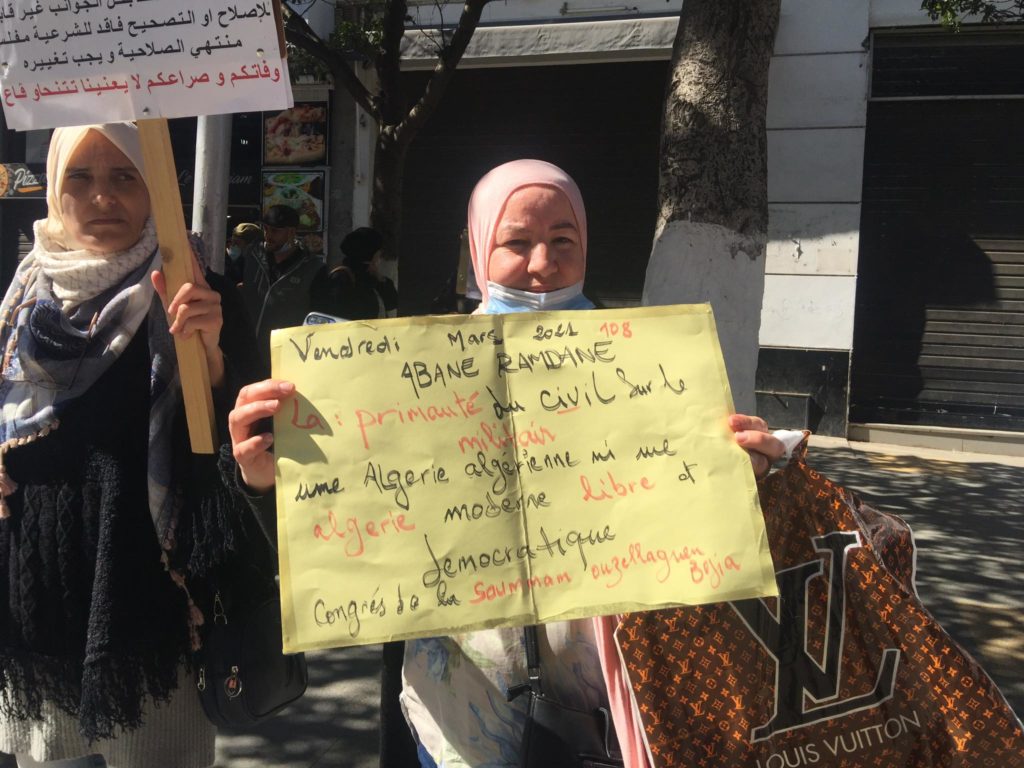 الجوانب غير
للإصلاح او التصحيح فاقد للشرعية
منتهي الصلاحية و يجب تغييره
وفاتكم و صراعكم لا يعنينا تتنحاو
Vendredi Mars 2021 108
ABANE RAMDANE
La : primauté du civil sur le
militair
une Algerie algérienne ni une
algerie moderne libre et
democratique
Congrés de la Soummam ouzellaguen
Bejia
LV
LOUIS VUITTON